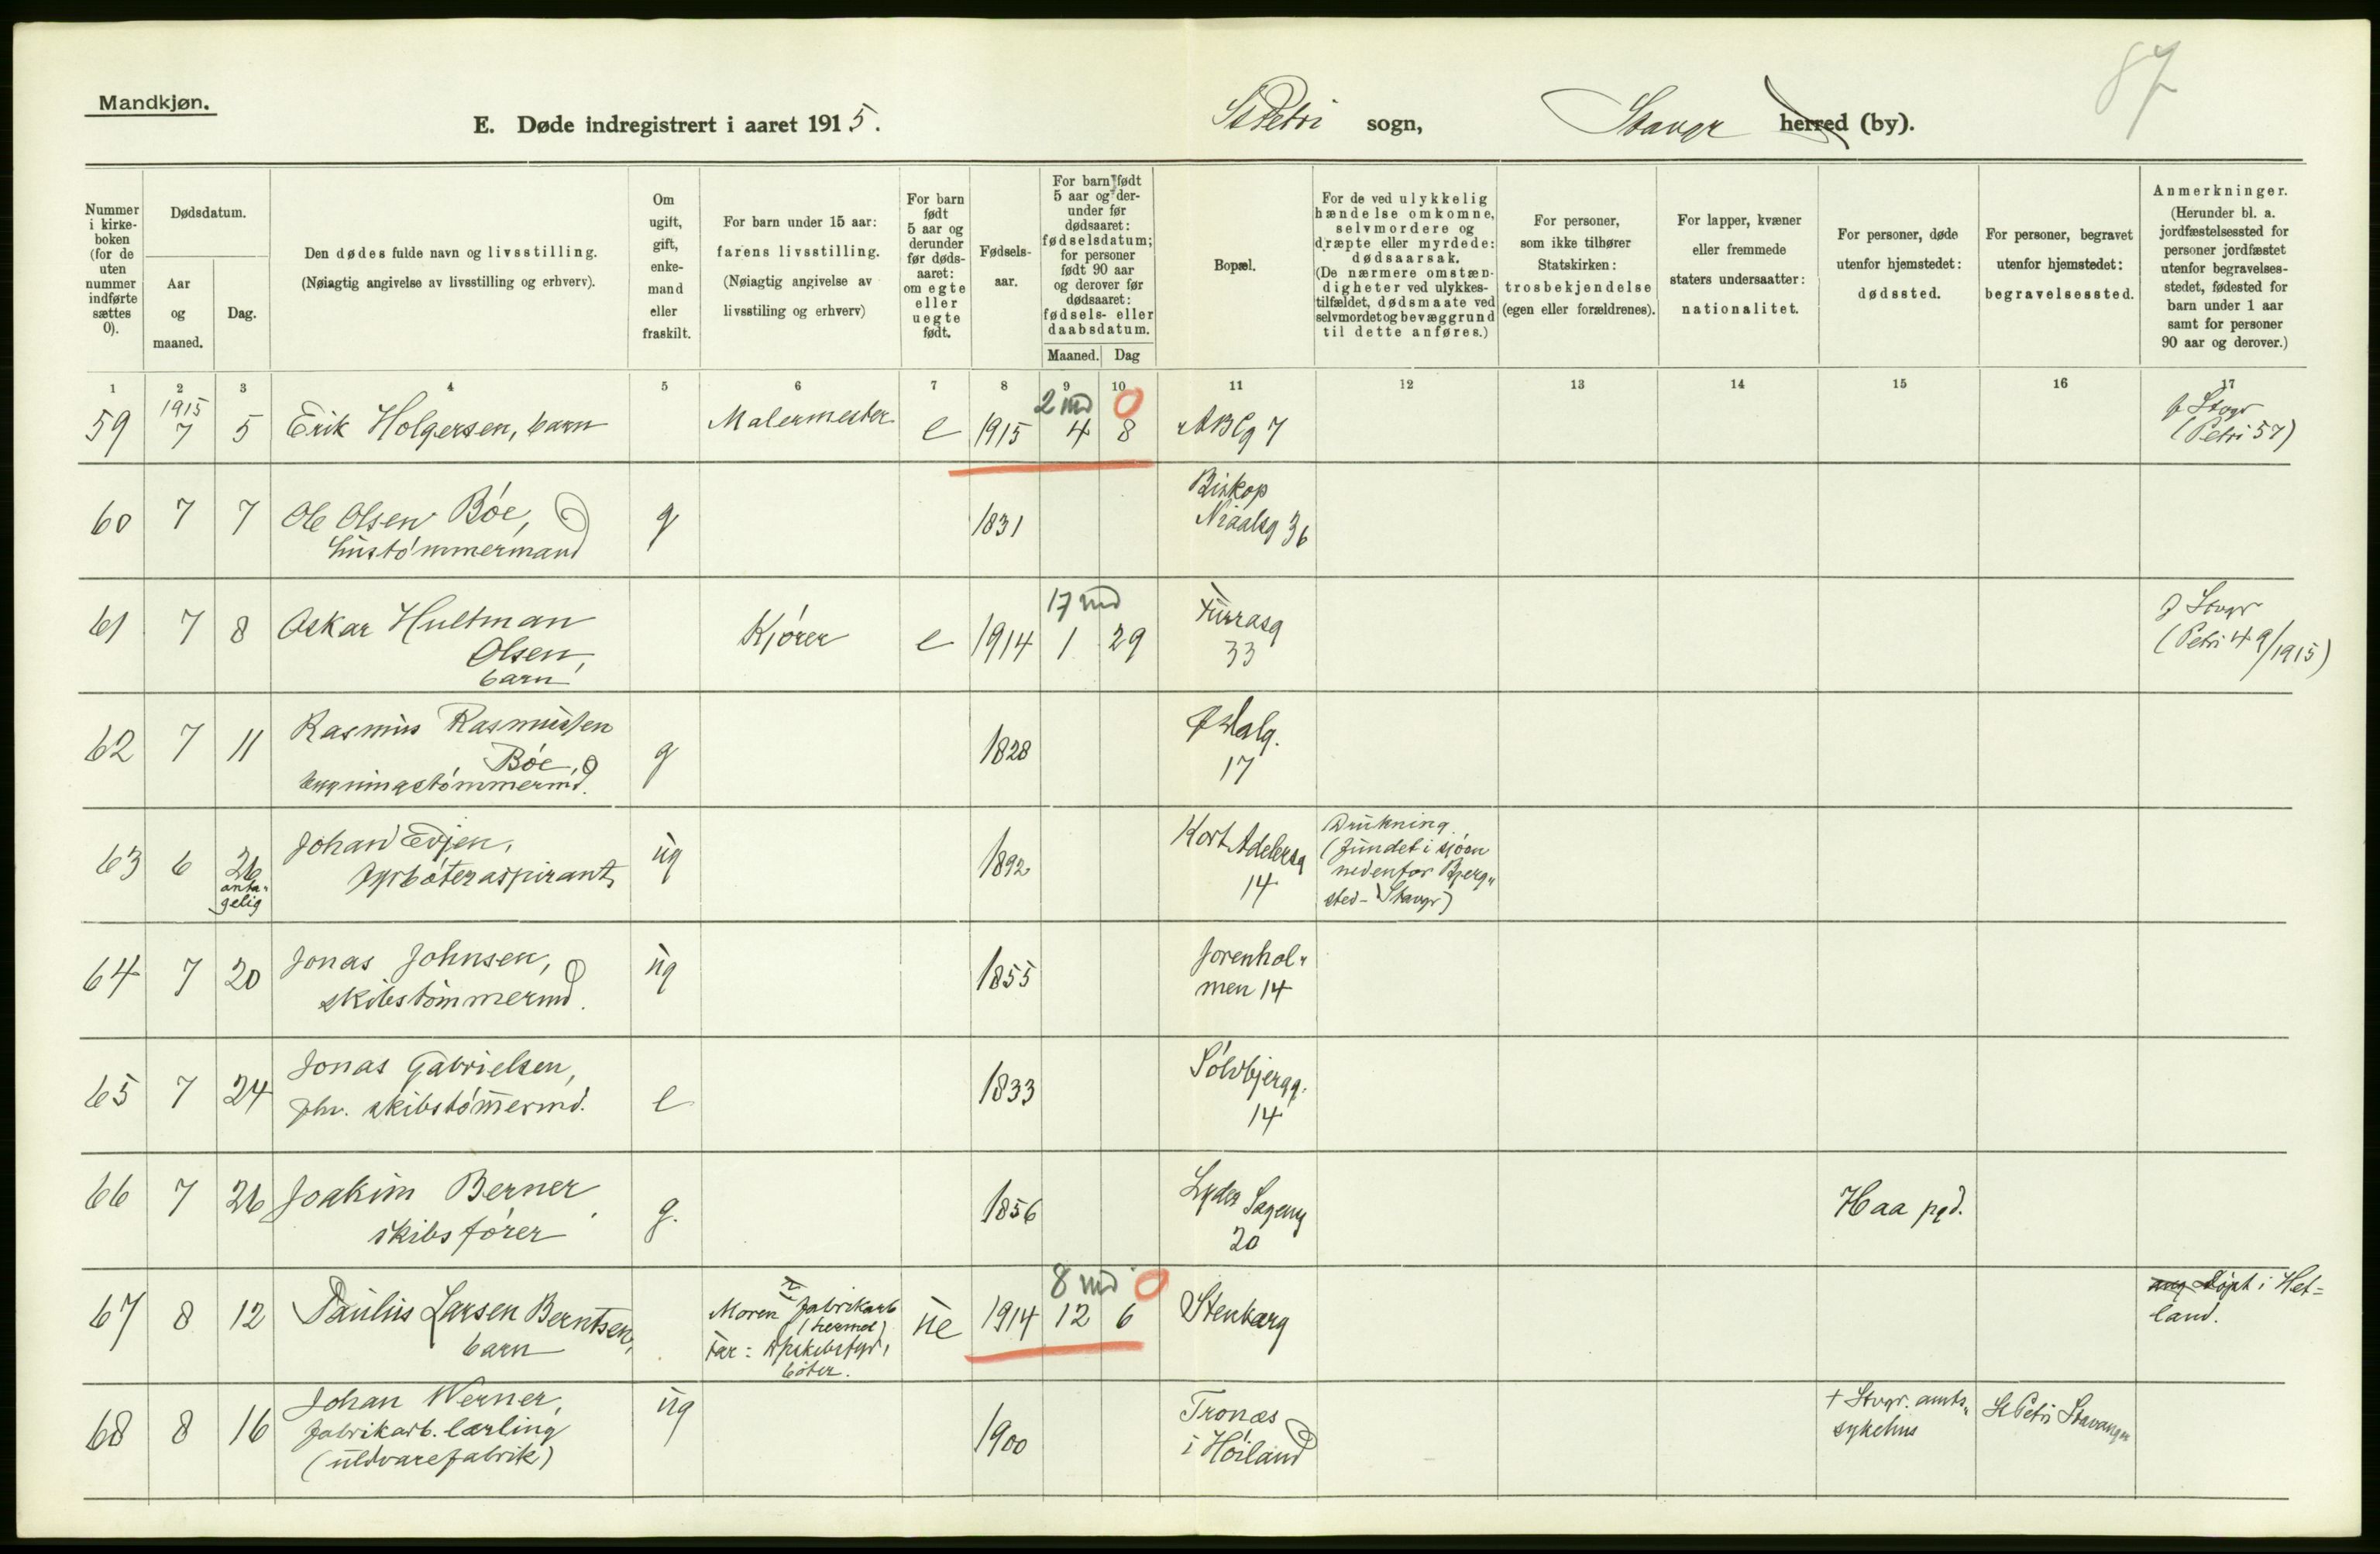 87
Mandkjøn.
E. Døde indregistrert i aaret 1915.
St Petri sogn, Stavgr herred (by).
Nummer i kirke-boken (for de uten nummer indførte sættes 0).
Dødsdatum.
Aar og maaned.
Dag.
Den dødes fulde navn og livsstilling.
(Nøiagtig angivelse av livsstilling og erhverv).
Om ugift, gift, enke-mand eller fraskilt.
For barn under 15 aar: farens livsstilling.
(Nøiagtig angivelse av livsstiling og erhverv)
For barn født 5 aar og derunder før døds-aaret: om egte eller uegte født.
Fødsels-aar.
For barn født 5 aar og der-under før dødsaaret: fødselsdatum; for personer født 90 aar og derover før dødsaaret: fødsels- eller daabsdatum.
Maaned. Dag
Bopæl.
For de ved ulykkelig hændelse omkomne, selvmordere og dræpte eller myrdede: dødsaarsak.
(De nærmere omstæn-digheter ved ulykkes-tilfældet, dødsmaate ved selvmordet og bevæggrund til dette anføres.)
For personer, som ikke tilhører Statskirken: trosbekjendelse (egen eller forældrenes).
For lapper, kvæner eller fremmede staters undersaatter: nationalitet.
For personer, døde utenfor hjemstedet: dødssted.
For personer, begravet utenfor hjemstedet: begravelsessted.
Anmerkninger.
(Herunder bl. a. jordfæstelsessted for personer jordfæstet utenfor begravelses-stedet, fødested for barn under 1 aar samt for personer 90 aar og derover.)
1 2 3 4 5 6 7 8 9 10 11 12 13 14 15 16 17
1915 2 md 0 f Stvgr
59 7 5 Erik Holgersen, barn Malermester e 1915 4 8 ABCg 7 (Petri 57)
60 7 7 Ole Olsen Bøe, g 1831 Biskop
hustømmermand Niaalsg 36
17 md f Stvgr
61 7 8 Oskar Hultman Kjører e 1914 1 29 Furrasg (Petri 49/1915)
Olsen, 33
barn
62 7 11 Rasmus Rasmussen g 1828
Bøe, 17
bygningstømmermd.
63 6 26 Johan Evjen, ug 1892 Kort Adelersg Drukning
anta- fyrbøteraspirant, 14 (fundet i sjøen
gelig nedenfor Bjerg-
sted - Stavgr)
64 7 20 Jonas Johnsen, ug 1855 Jorenhol-
skibstømmermd. men 14
65 7 24 Jonas Gabrielsen, e 1833 Sølvbjergg.
fhv. skibstømmermd. 14
66 7 26 Joakim Berner g. 1856 Lyder Sagensg Haa pgd.
skibsfører 20
8 md 0
67 8 12 Paulus Larsen Berntsen, Moren fabrikarb ue 1914 12 6 Stenbarg Døpt i Het-
barn (hermet) land.
Far: dpskibsfyr-
bøter.
68 8 16 Johan Werner, ug 1900 Tronæs + Stvgr. amts- St Petri Stavanger
fabrikarb. lærling i Høiland sykehus
(uldvarefabrik)